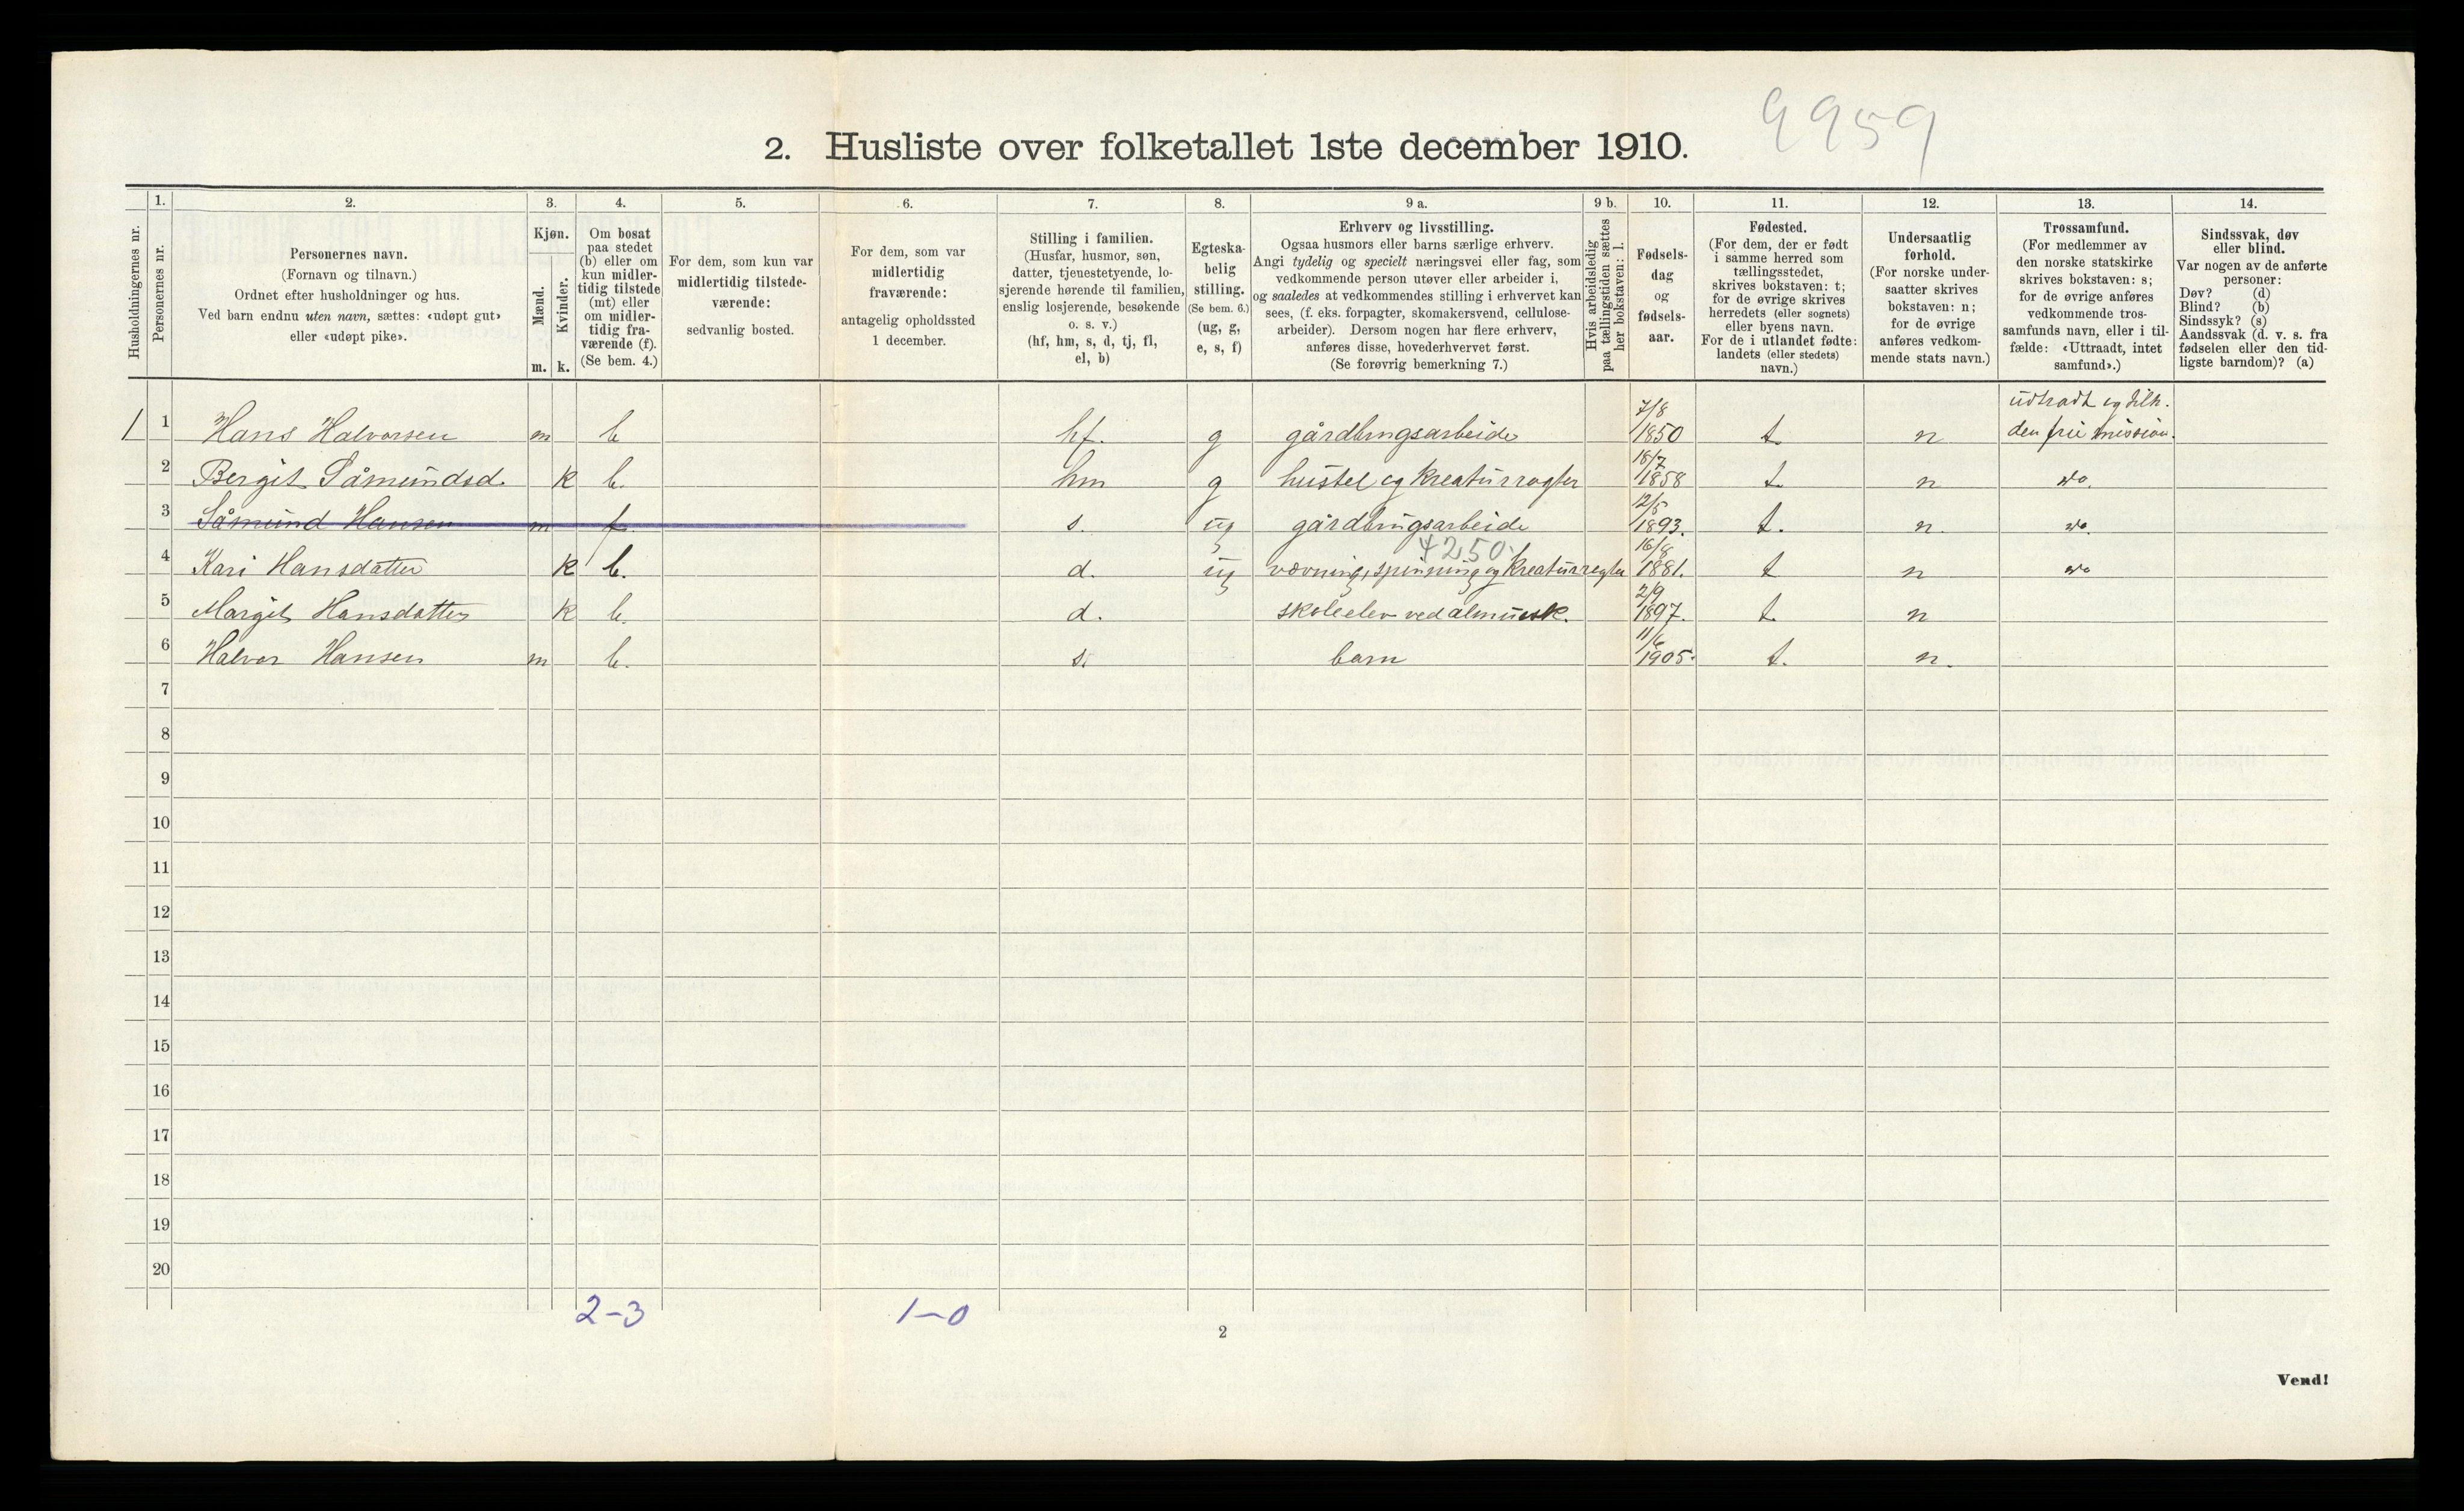 9959
2. Husliste over folketallet 1ste december 1910.
Husholdningernes nr.
1. Personernes nr.
2. Personernes navn. (Fornavn og tilnavn.) Ordnet efter husholdninger og hus. Ved barn endnu uten navn, sættes: «udøpt gut» eller «udøpt pike».
3. Kjøn. Mænd. m. Kvinder. k.
4. Om bosat paa stedet (b) eller om kun midlertidig tilstede (mt) eller om midlertidig fraværende (f). (Se bem. 4.)
5. For dem, som kun var midlertidig tilstedeværende: sedvanlig bosted.
6. For dem, som var midlertidig fraværende: antagelig opholdssted 1 december.
7. Stilling i familien. (Husfar, husmor, søn, datter, tjenestetyende, losjerende hørende til familien, enslig losjerende, besøkende o. s. v.) (hf, hm, s, d, tj, fl, el, b)
8. Egteskabelig stilling. (Se bem. 6.) (ug, g, e, s, f)
9 a. Erhverv og livsstilling. Ogsaa husmors eller barns særlige erhverv. Angi tydelig og specielt næringsvei eller fag, som vedkommende person utøver eller arbeider i, og saaledes at vedkommendes stilling i erhvervet kan sees, (f. eks. forpagter, skomakersvend, cellulosearbeider). Dersom nogen har flere erhverv, anføres disse, hovederhvervet først. (Se forøvrig bemerkning 7.)
9 b. Hvis arbeidsledig paa tællingstiden sættes her bokstaven: l.
10. Fødselsdag og fødselsaar.
11. Fødested. (For dem, der er født i samme herred som tællingsstedet, skrives bokstaven: t; for de øvrige skrives herredets (eller sognets) eller byens navn. For de i utlandet fødte: landets (eller stedets) navn.)
12. Undersaatlig forhold. (For norske undersaatter skrives bokstaven: n; for de øvrige anføres vedkommende stats navn.)
13. Trossamfund. (For medlemmer av den norske statskirke skrives bokstaven: s; for de øvrige anføres vedkommende trossamfunds navn, eller i tilfælde: «Uttraadt, intet samfund».)
14. Sindssvak, døv eller blind. Var nogen av de anførte personer: Døv? (d) Blind? (b) Sindssyk? (s) Aandssvak (d. v. s. fra fødselen eller den tidligste barndom)? (a)
1 1 Hans Halvorsen m b hf. g gårdbrugsarbeide 7/8 1850 t. n udtradt og tilh. den frie mission.
2 Bergit Såmundsd. k b. hm g hustel og kreaturrøgter 18/7 1858 t. n do.
3 Såmund Hansen m f s. ug gårdbrugsarbeide 12/5 1893. t. n. do.
4250
4 Kari Hansdatter k b. d. ug vævning, spinning og kreaturrøgter 16/8 1881. t n do
5 Margit Hansdatter k b. d. skoleelev ved almuesk. 2/9 1897. t. n
6 Halvor Hansen m b. s. barn 11/6 1905. t. n.
7
8
9
10
11
12
13
14
15
16
17
18
19
20
2-3 1-0
2
Vend!